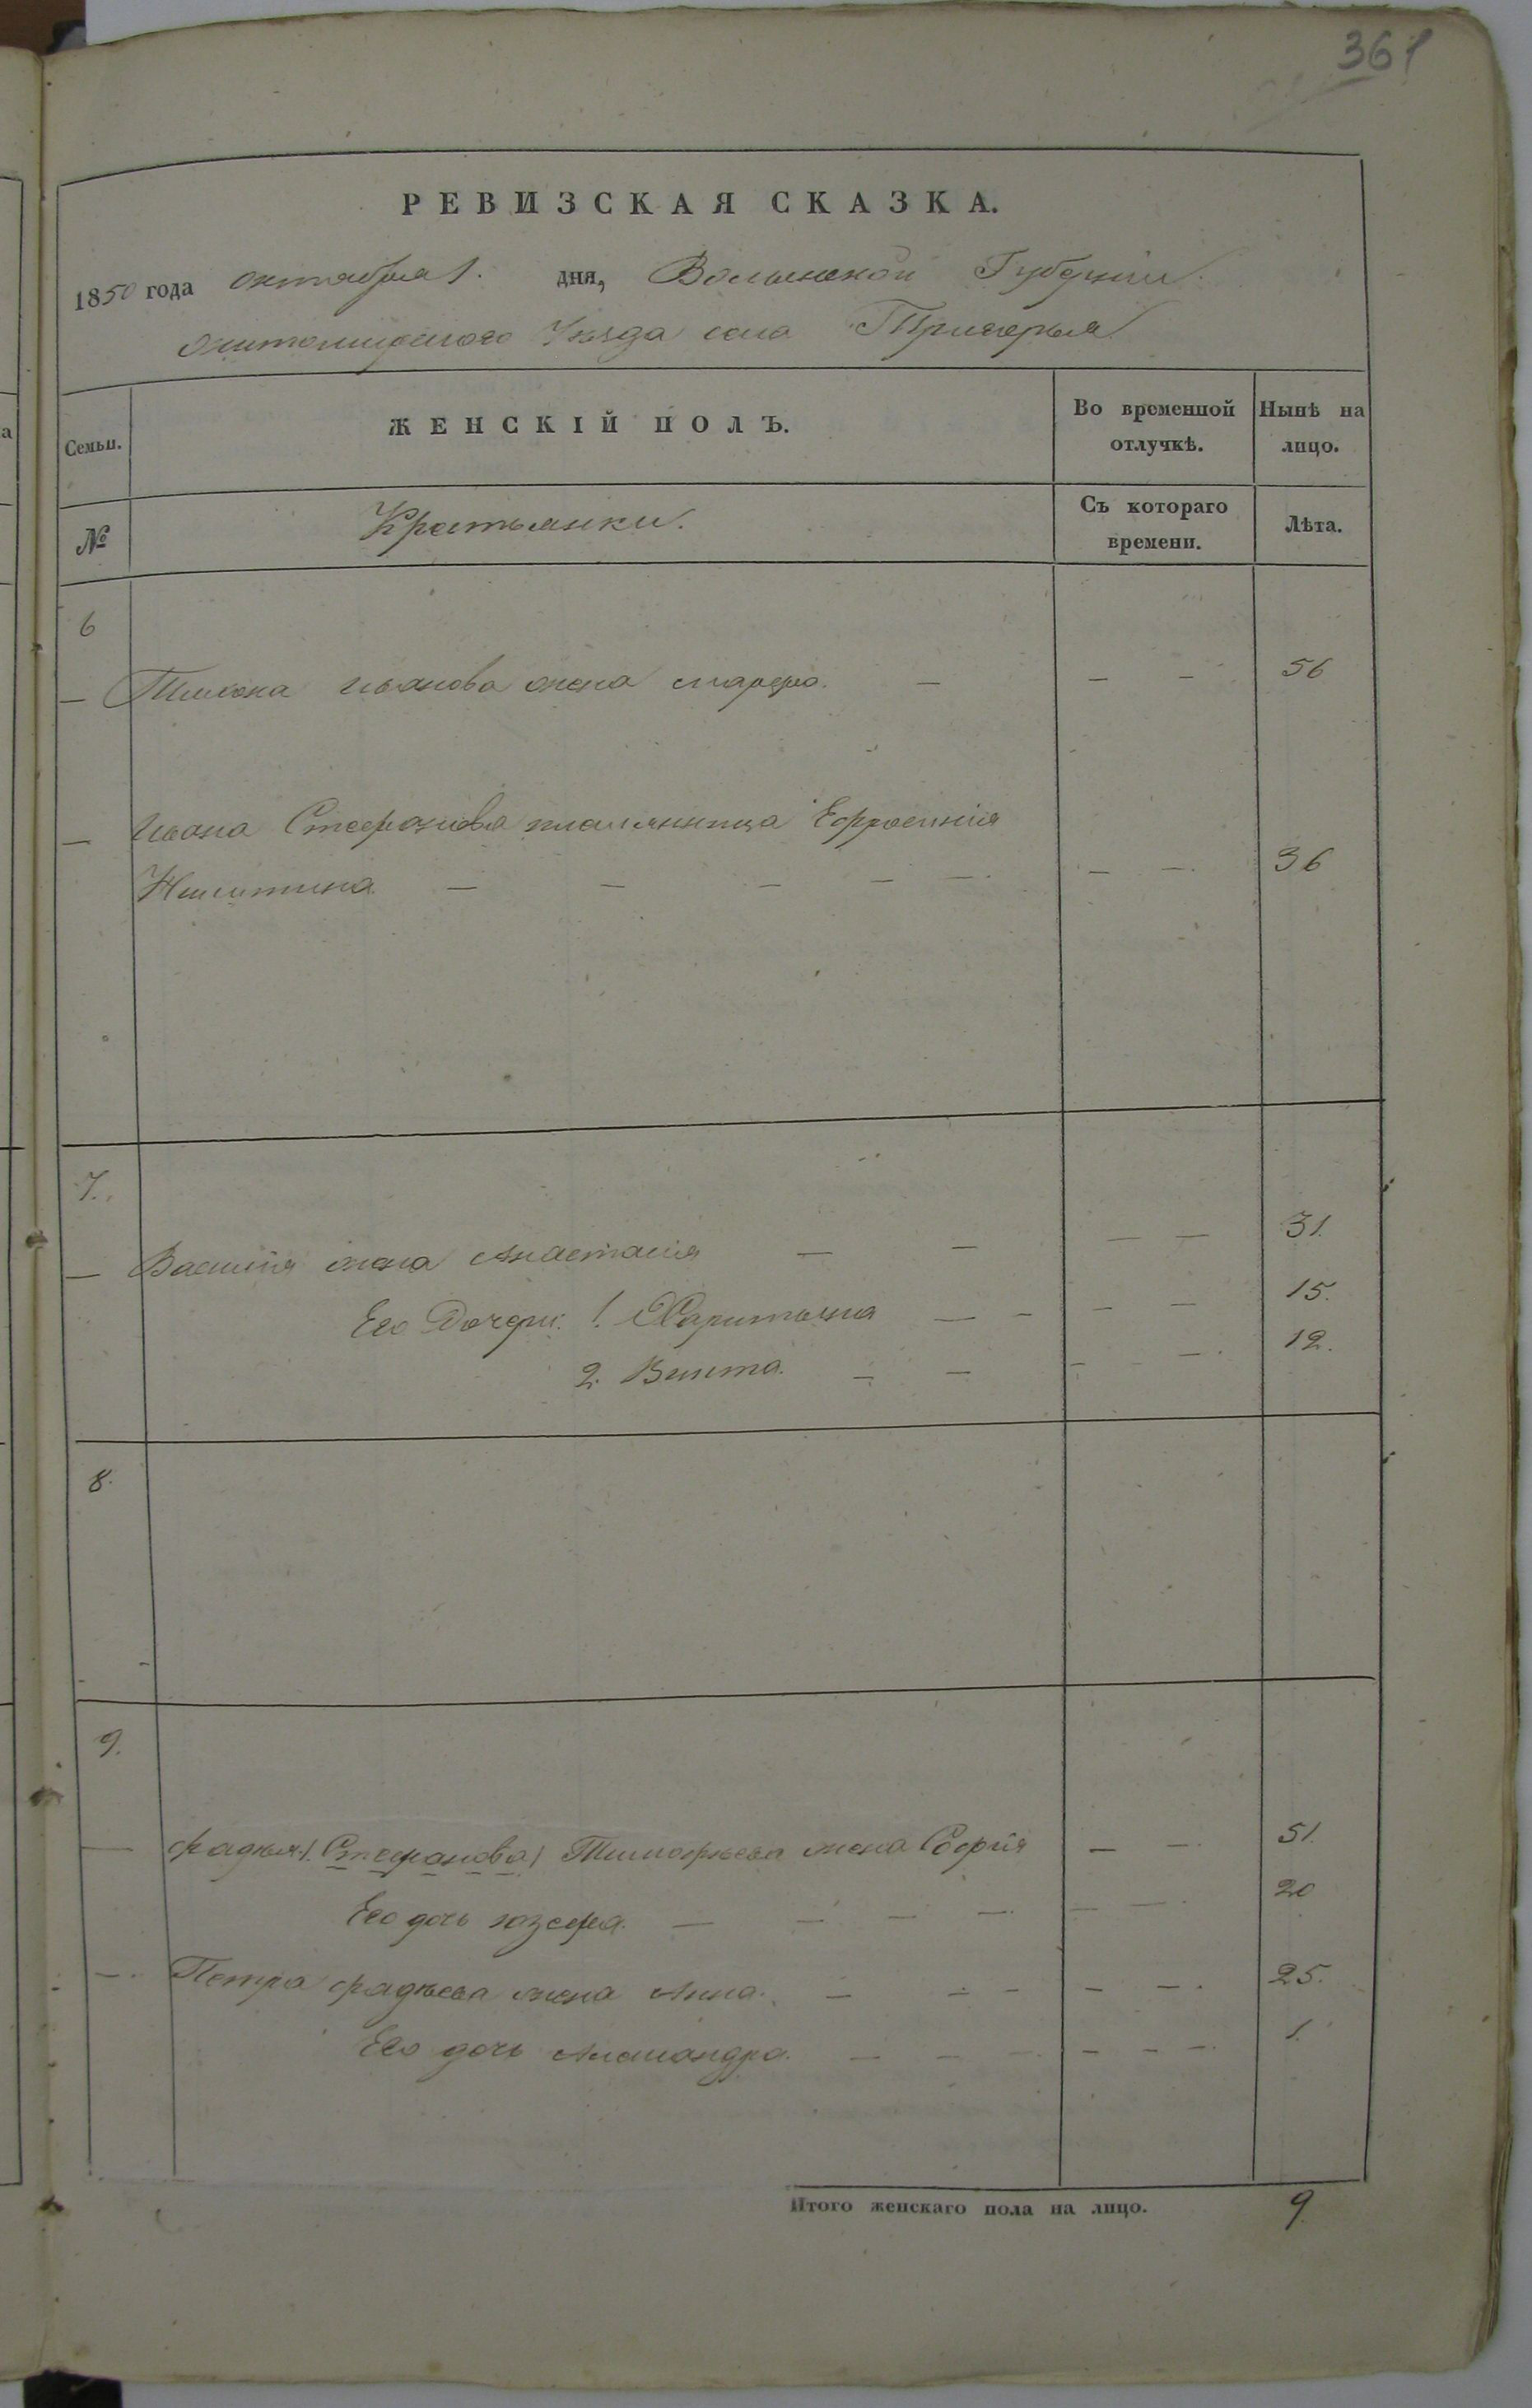 361
РЕВИЗСКАЯ СКАЗКА.
1850 года октября 1. дня, Волынской Губерніи
житомирского Уезда села Тригорья
Семьи.
ЖЕНСКІЙ ПОЛЪ.
Во временной отлучкѣ.
Нынѣ на лицо.
№
Крестьянки.
Съ котораго времени.
Лѣта.
6
— Тихона иванова жена марфа. — — — 56
— Ивана Стефанова племянница Ефросинія
Никитина. — — — — —. — —. 36
7.
— Василія жена Анастасія — — — — 31.
Его Дочери: 1. Харитына — — — — 15.
2. — — — —. 12.
8.
9.
— фадея /Стефанова/ Тимофеева жена Софія — —. 51.
Его дочь юзефа. — — — —. — —. 20
—. Петра фадеева жена Анна. — — — — —. 25.
Его дочь Александра. — — — — — —. 1.
Итого женскаго пола на лицо. 9